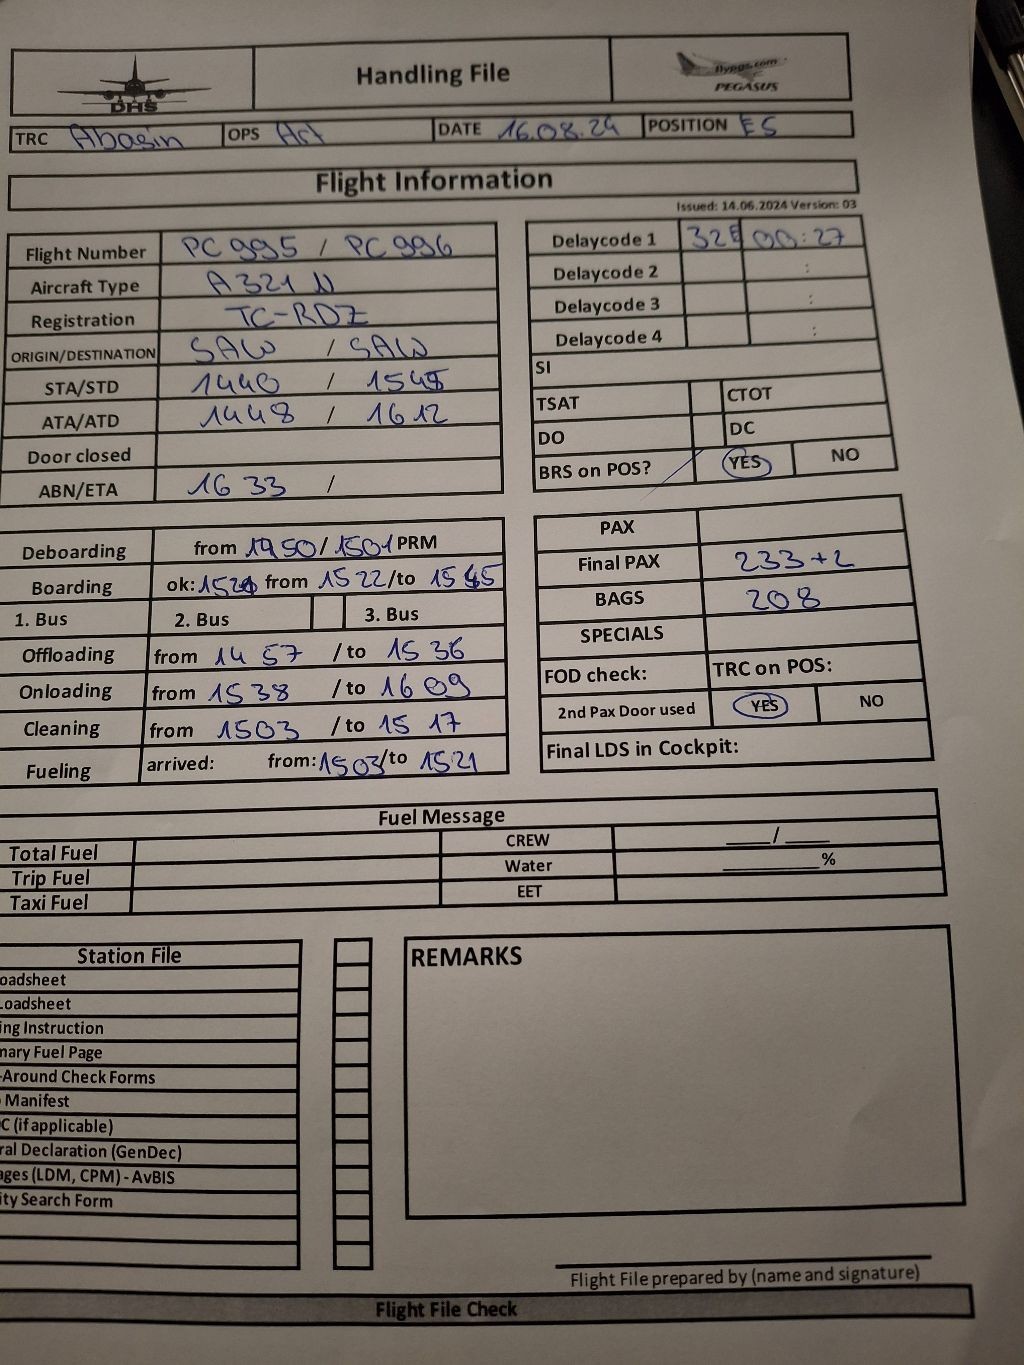 DHS
Handling File
flypgs.com
PEGASUS
TRC Abasin OPS Art DATE 16.08.24 POSITION E5
Flight Information
Issued: 14.06.2024 Version: 03
Flight Number PC 995 / PC 996
Aircraft Type A321 N
Registration TC-RDZ
ORIGIN/DESTINATION SAW / SAW
STA/STD 1440 / 1545
ATA/ATD 1448 / 1612
Door closed
ABN/ETA 16 33 /
Delaycode 1 32E 00:27
Delaycode 2 :
Delaycode 3 :
Delaycode 4 :
SI
TSAT CTOT
DO DC
BRS on POS? YES NO
Deboarding from 1450/ 1501 PRM
Boarding ok: from 1522/to 1545
1. Bus 2. Bus 3. Bus
Offloading from 14 57 /to 15 36
Onloading from 1538 /to 1609
Cleaning from 1503 /to 15 17
Fueling arrived: from:1503/to 1521
PAX
Final PAX 233+2
BAGS 208
SPECIALS
FOD check: TRC on POS:
2nd Pax Door used YES NO
Final LDS in Cockpit:
Fuel Message
Total Fuel CREW ____/____
Trip Fuel Water ________%
Taxi Fuel EET
Station File
oadsheet
Loadsheet
ing Instruction
mary Fuel Page
-Around Check Forms
Manifest
C (if applicable)
ral Declaration (GenDec)
ages (LDM, CPM) - AvBIS
ity Search Form
REMARKS
Flight File prepared by (name and signature)
Flight File Check